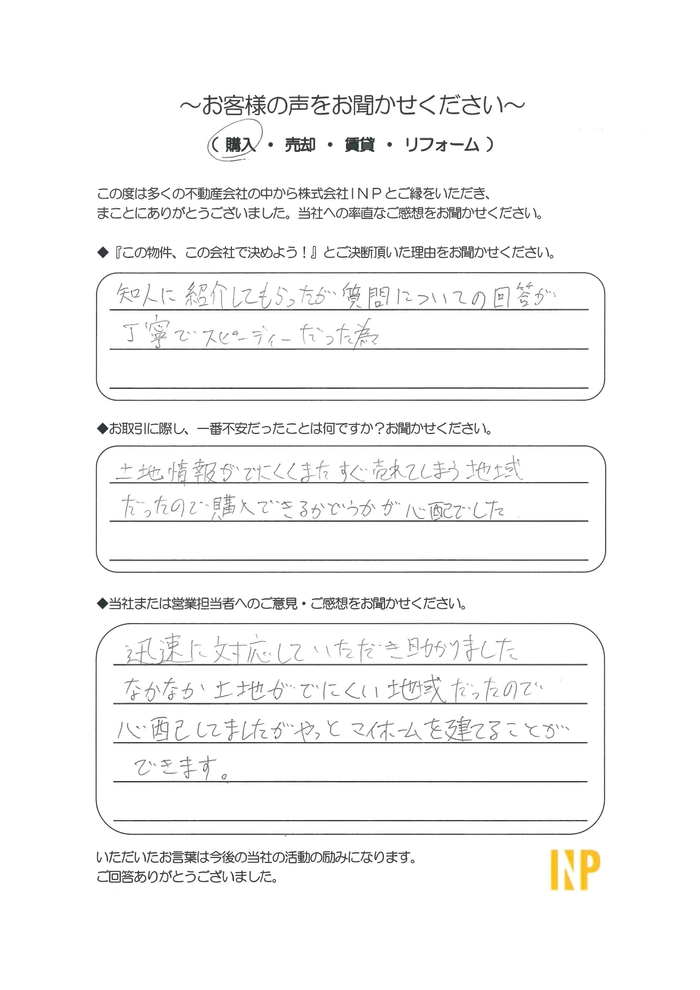 ～お客様の声をお聞かせください～
（ 購入 ・ 売却 ・ 賃貸 ・ リフォーム ）
この度は多くの不動産会社の中から株式会社ＩＮＰとご縁をいただき、
まことにありがとうございました。当社への率直なご感想をお聞かせください。
◆『この物件、この会社で決めよう！』とご決断頂いた理由をお聞かせください。
知人に紹介してもらったが質問についての回答が
丁寧でスピーディーだった為
◆お取引に際し、一番不安だったことは何ですか？お聞かせください。
土地情報がでにくくまたすぐ売れてしまう地域
だったので購入できるかどうかが心配でした
◆当社または営業担当者へのご意見・ご感想をお聞かせください。
迅速に対応していただき助かりました
なかなか土地がでにくい地域だったので
心配してましたがやっとマイホームを建てることが
できます。
いただいたお言葉は今後の当社の活動の励みになります。
ご回答ありがとうございました。
INP